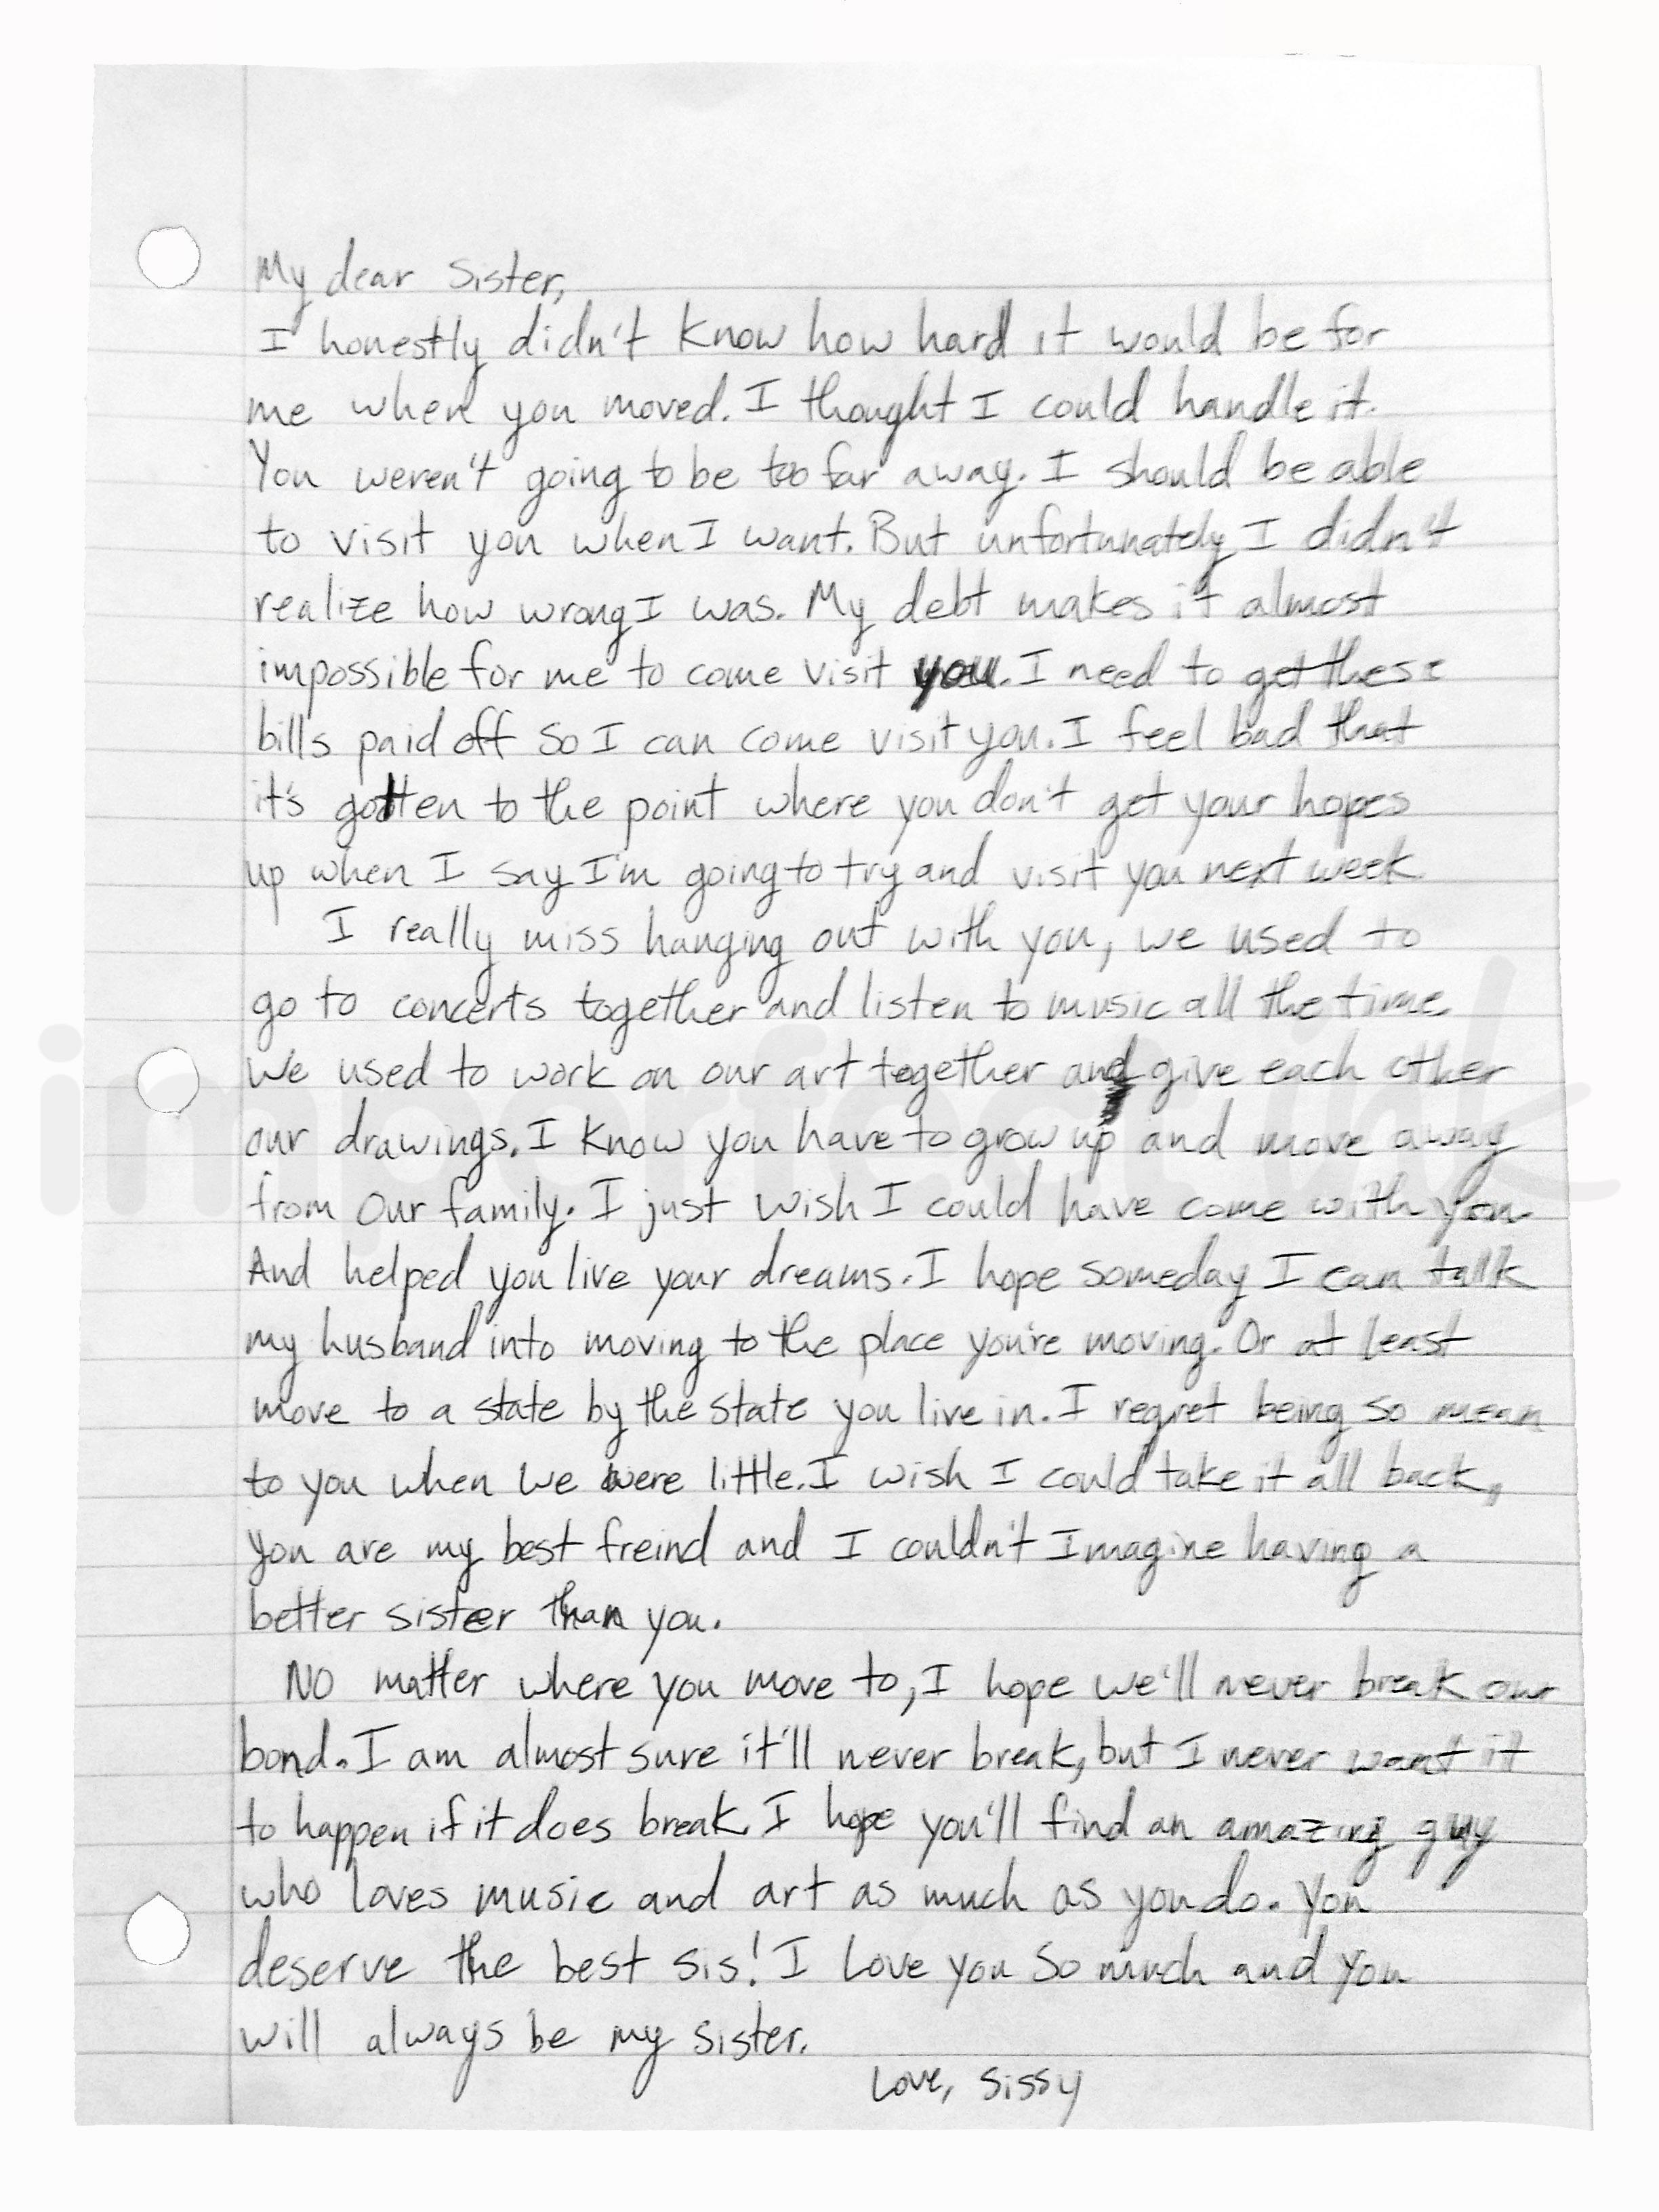 My dear Sister,
I honestly didn't know how hard it would be for
me when you moved. I thought I could handle it.
You weren't going to be too far away. I should be able
to visit you when I want. But unfortunately I didn't
realize how wrong I was. My debt makes it almost
impossible for me to come visit you. I need to get these
bills paid off so I can come visit you. I feel bad that
it's gotten to the point where you don't get your hopes
up when I say I'm going to try and visit you next week.
I really miss hanging out with you, we used to
go to concerts together and listen to music all the time.
We used to work on our art together and give each other
our drawings. I know you have to grow up and move away
from our family. I just wish I could have come with you.
And helped you live your dreams. I hope someday I can talk
my husband into moving to the place you're moving. Or at least
move to a state by the state you live in. I regret being so mean
to you when we were little. I wish I could take it all back,
you are my best freind and I couldn't Imagine having a
better sister than you.
No matter where you move to, I hope we'll never break our
bond. I am almost sure it'll never break, but I never want it
to happen if it does break. I hope you'll find an amazing guy
who loves music and art as much as you do. You
deserve the best sis! I Love you so much and you
will always be my sister.
Love, Sissy
imperfect ink